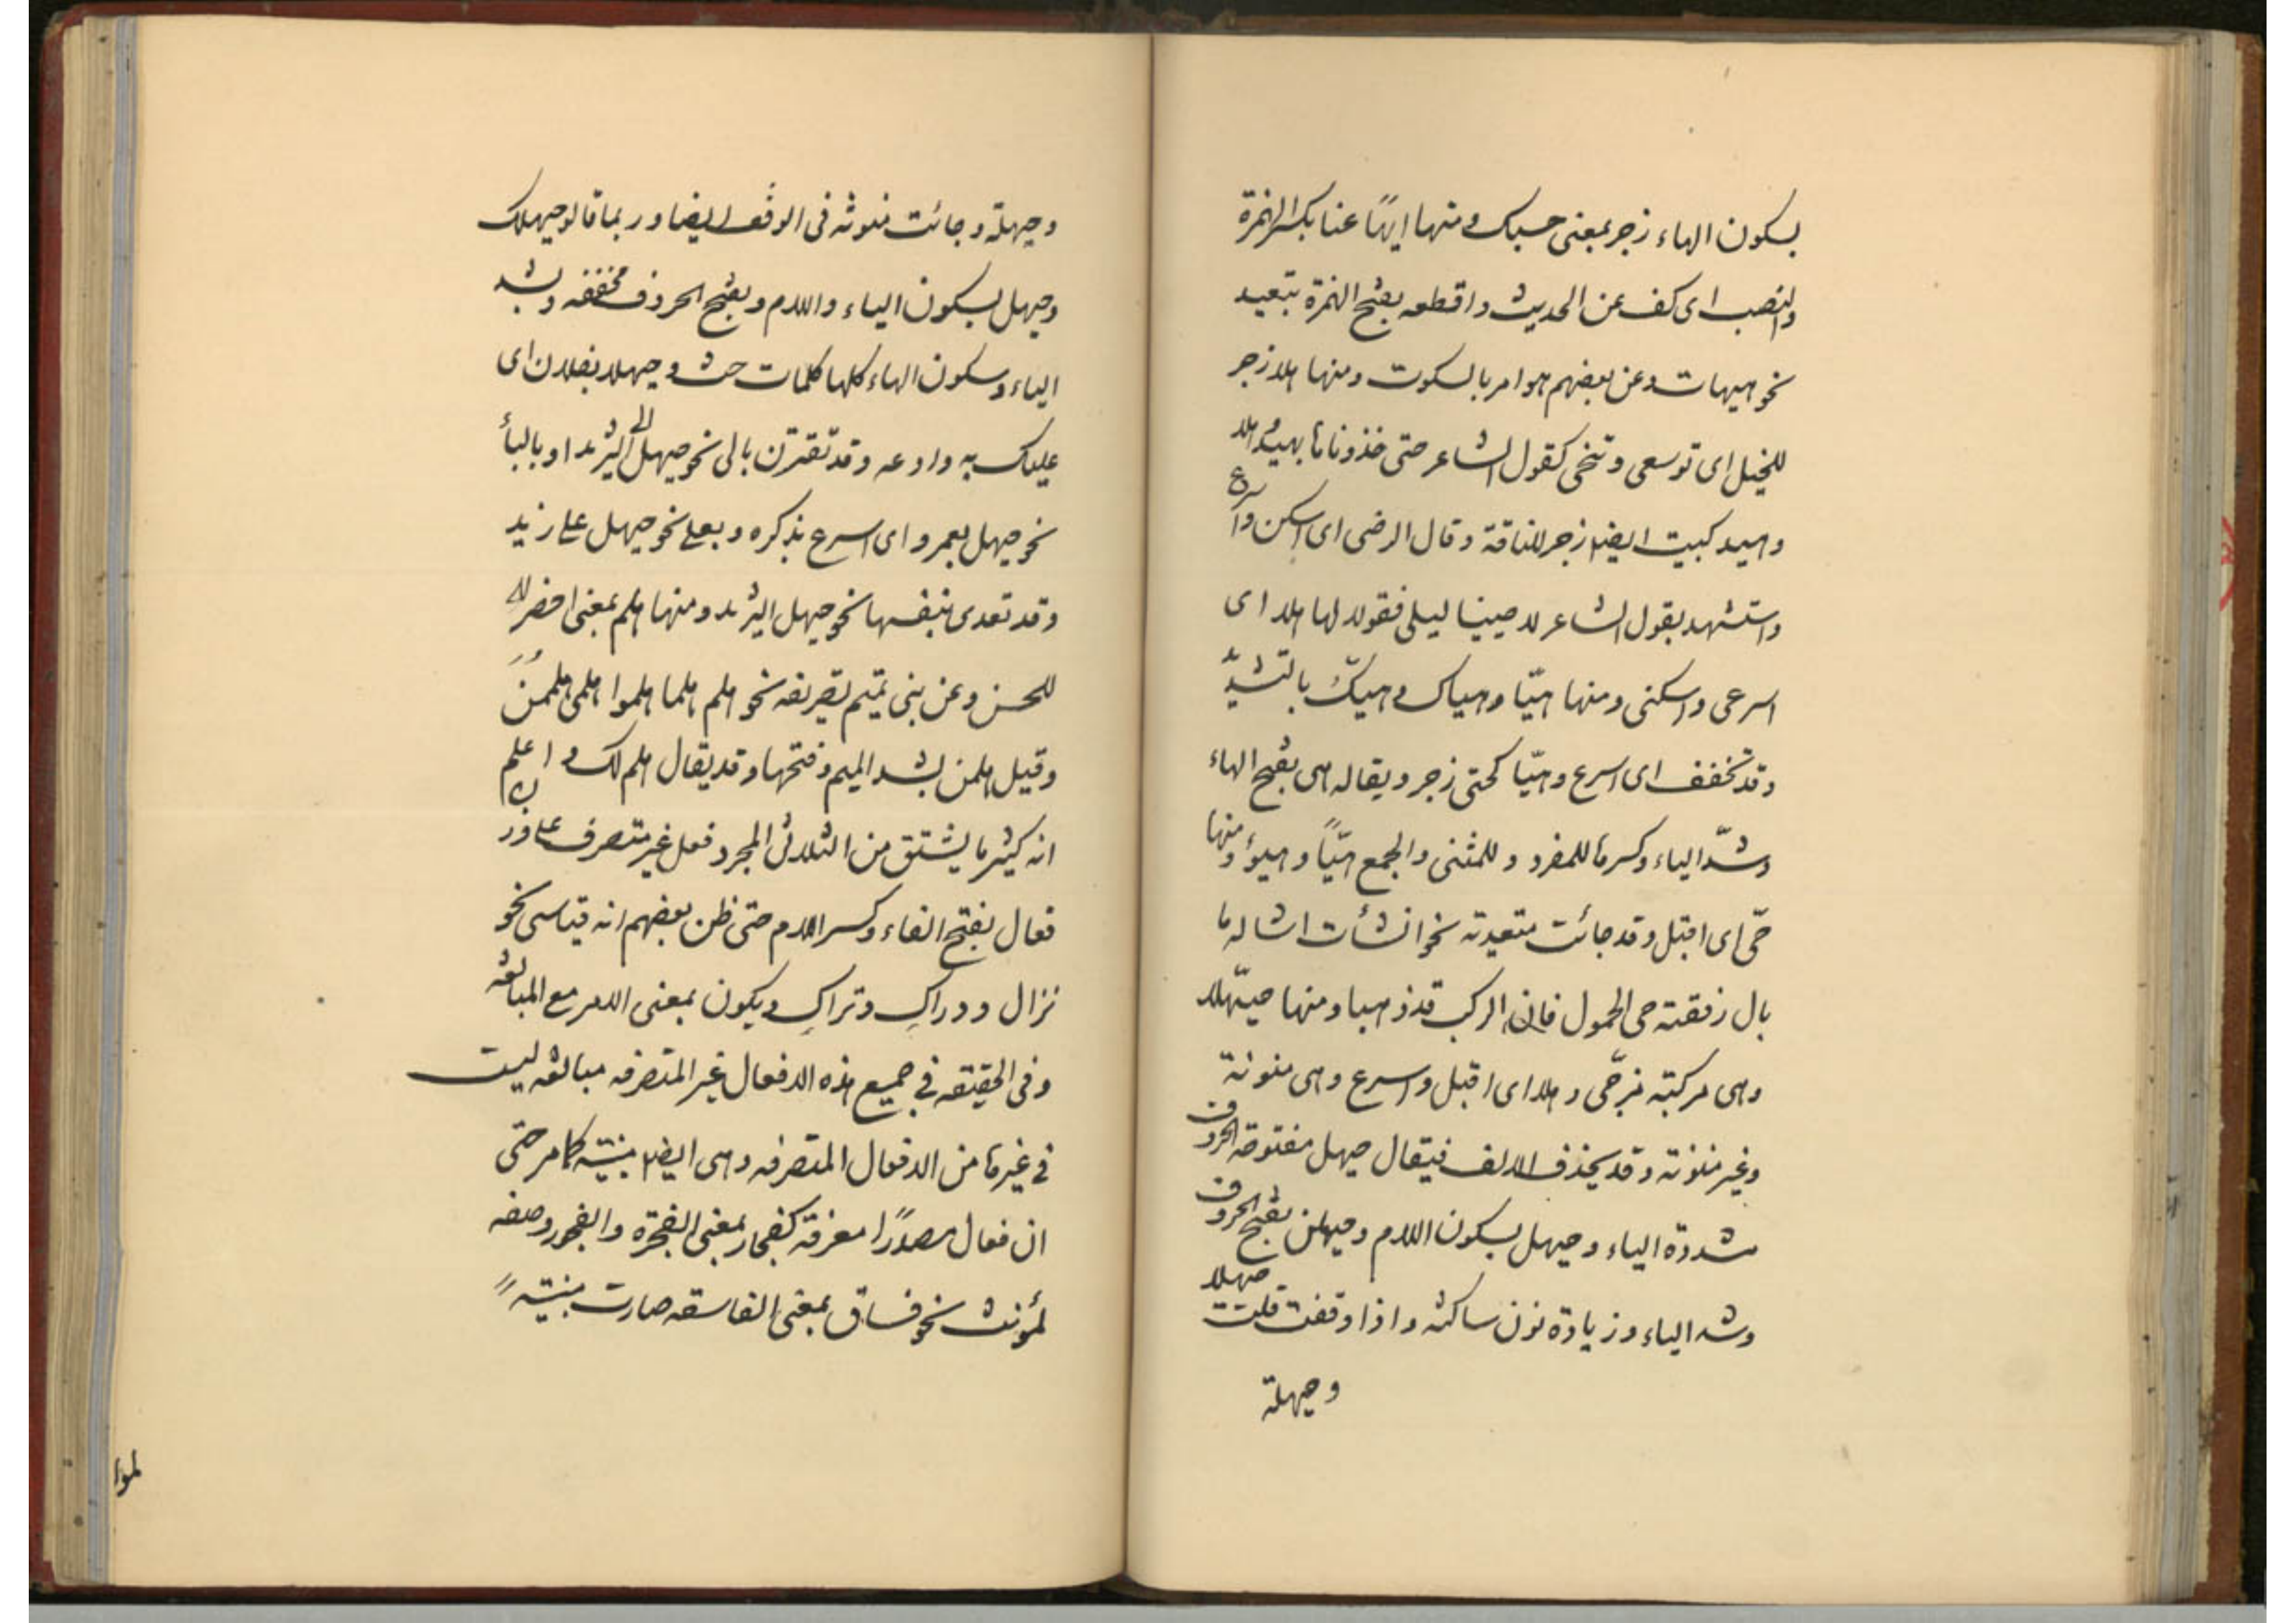 بسكون الهاء زجر بمعنى حسبك ومنها ايهًا عنا بكسر الهمزة
والنصب اى كف عن الحديث واقطعه بفتح الهمزة بتعيد
نحو هيهات وعن بعضهم هو امر بالسكوت ومنها هلا زجر
للخيل اى توسعى وتنحى كقول الشاعر حتى هلا
وهيد كبيت ايضا زجر للناقة وقال الرضى اى اسكن واسرع
واستشهد بقول الشاعر لا حيينا ليلى فقولا لها هلا اى
اسرعى واسكنى ومنها هيّا وهياك وهيكَ بالتشدّيد
وقد تخفف اى اسرع وهيّا كحتى زجر ويقال هى بفتح الهاء
وشدّ الياء وكسرها للمفرد وللمثنى والجمع هيّاً وهيوا ومنها
حىّ اى اقبل وقد جائت متعدية نحو انشأت اسأله ما
بال رفقته حى الحمول فان الركب قد ذهبا ومنها حيّهلا
وهى مركبة من حىّ وهلا اى اقبل واسرع وهى منونة
وغير منونة وقد يحذف الالف فيقال حيهل مفتوحة الحروف
مشددة الياء وحيهل بسكون اللام وحيهلن بفتح الحروف
وشد الياء وزيادة نون ساكنه واذا وقفت قلت حيهلا
وحيهلة
وحيهلة وجائت منونه فى الوقف ايضا وربما قالو حيهلك
وحيهل بسكون الياء واللام وبفتح الحروف مخففه وبشد
الياء وسكون الهاء كلها كلمات حث وحيهلا بفلان اى
عليك به وادعه وقد تقترن بالى نحو حيهل الى الثريد او بالبأ
نحو حيهل بعمرو اى اسرع بذكره وبعلى نحو حيهل على زيد
وقد تعدى بنفسها نحو حيهل الثريد ومنها هلم بمعنى احضر
وعن بنى تميم تصريفه نحو هلم هلما هلموا هلمى هلممنَ
وقيل هلمن بشد الميم وفتحها وقد يقال هلم لك واعلم
انه كثير ما يشتق من الثلاثى المجرد فعل غير متصرف على وزن
فعال بفتح الفاء وكسر اللام حتى ظن بعضهم انه قياسى نحو
نزال ودراكِ وتراكِ ويكون بمعنى الامر مع المبالغه
وفى الحقيقه فى جميع هذه الافعال غير المتصرفه مبالغه ليست
فى غيرها من الافعال المتصرفه وهى ايضا مبنيّه كما مر حتى
ان فعال مصدرًا معرفة كفجار بمعنى الفجرة والفجور وصفه
لمؤنث نحو فساق بمعنى الفاسقه صارت مبنيّهً